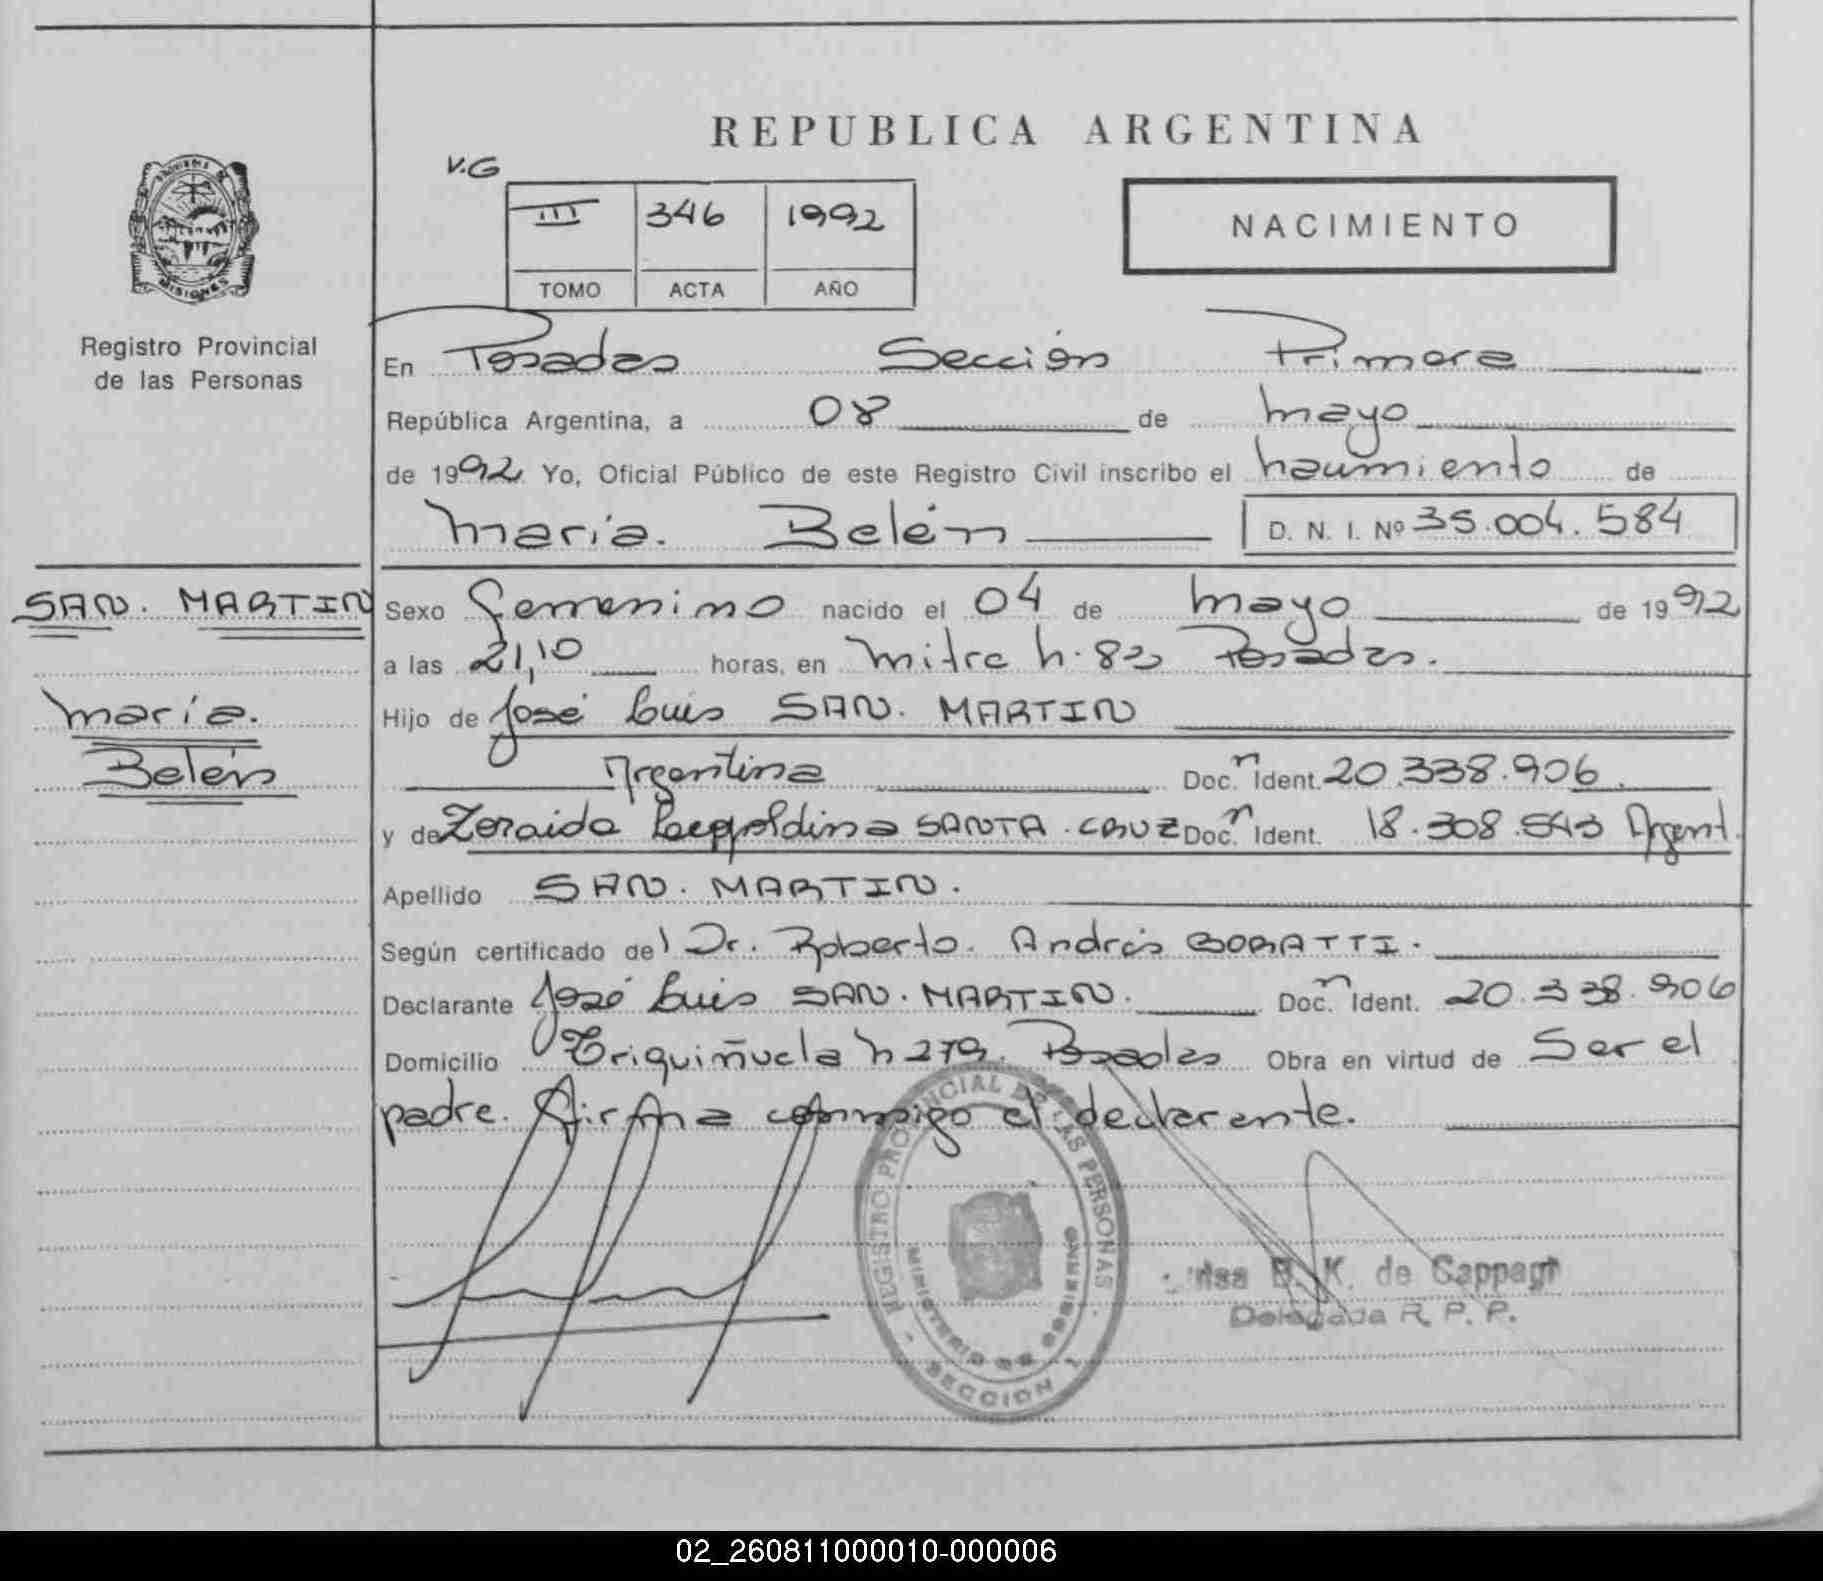 REPUBLICA ARGENTINA
V.G
III 346 1992
TOMO ACTA AÑO
NACIMIENTO
PROVINCIA DE
MISIONES
Registro Provincial
de las Personas
En Posadas Sección Primera
República Argentina, a 08 de mayo
de 1992 Yo, Oficial Público de este Registro Civil inscribo el nacimiento de
María. Belén D. N. I. Nº 35.004.584
SAN. MARTIN
María.
Belén
Sexo femenino nacido el 04 de mayo de 1992
a las 21,10 horas, en Mitre n. Posadas.
Hijo de José Luis SAN. MARTIN
Argentina Doc.n Ident. 20.338.906.
y de Zoraida Leopoldina SANTA. CRUZ Doc.n Ident. 18.308.543 Argent.
Apellido SAN. MARTIN.
Según certificado del Dr. Roberto. Andrés BORATTI.
Declarante José Luis SAN. MARTIN. Doc.n Ident. 20.338.906
Domicilio Triquiñuela n 279. Posadas Obra en virtud de Ser el
padre. Firma conmigo el declarante.
REGISTRO PROVINCIAL DE LAS PERSONAS
MINISTERIO DE GOBIERNO
SECCION 1
B. K. de
Delegada R. P. P.
02_260811000010-000006